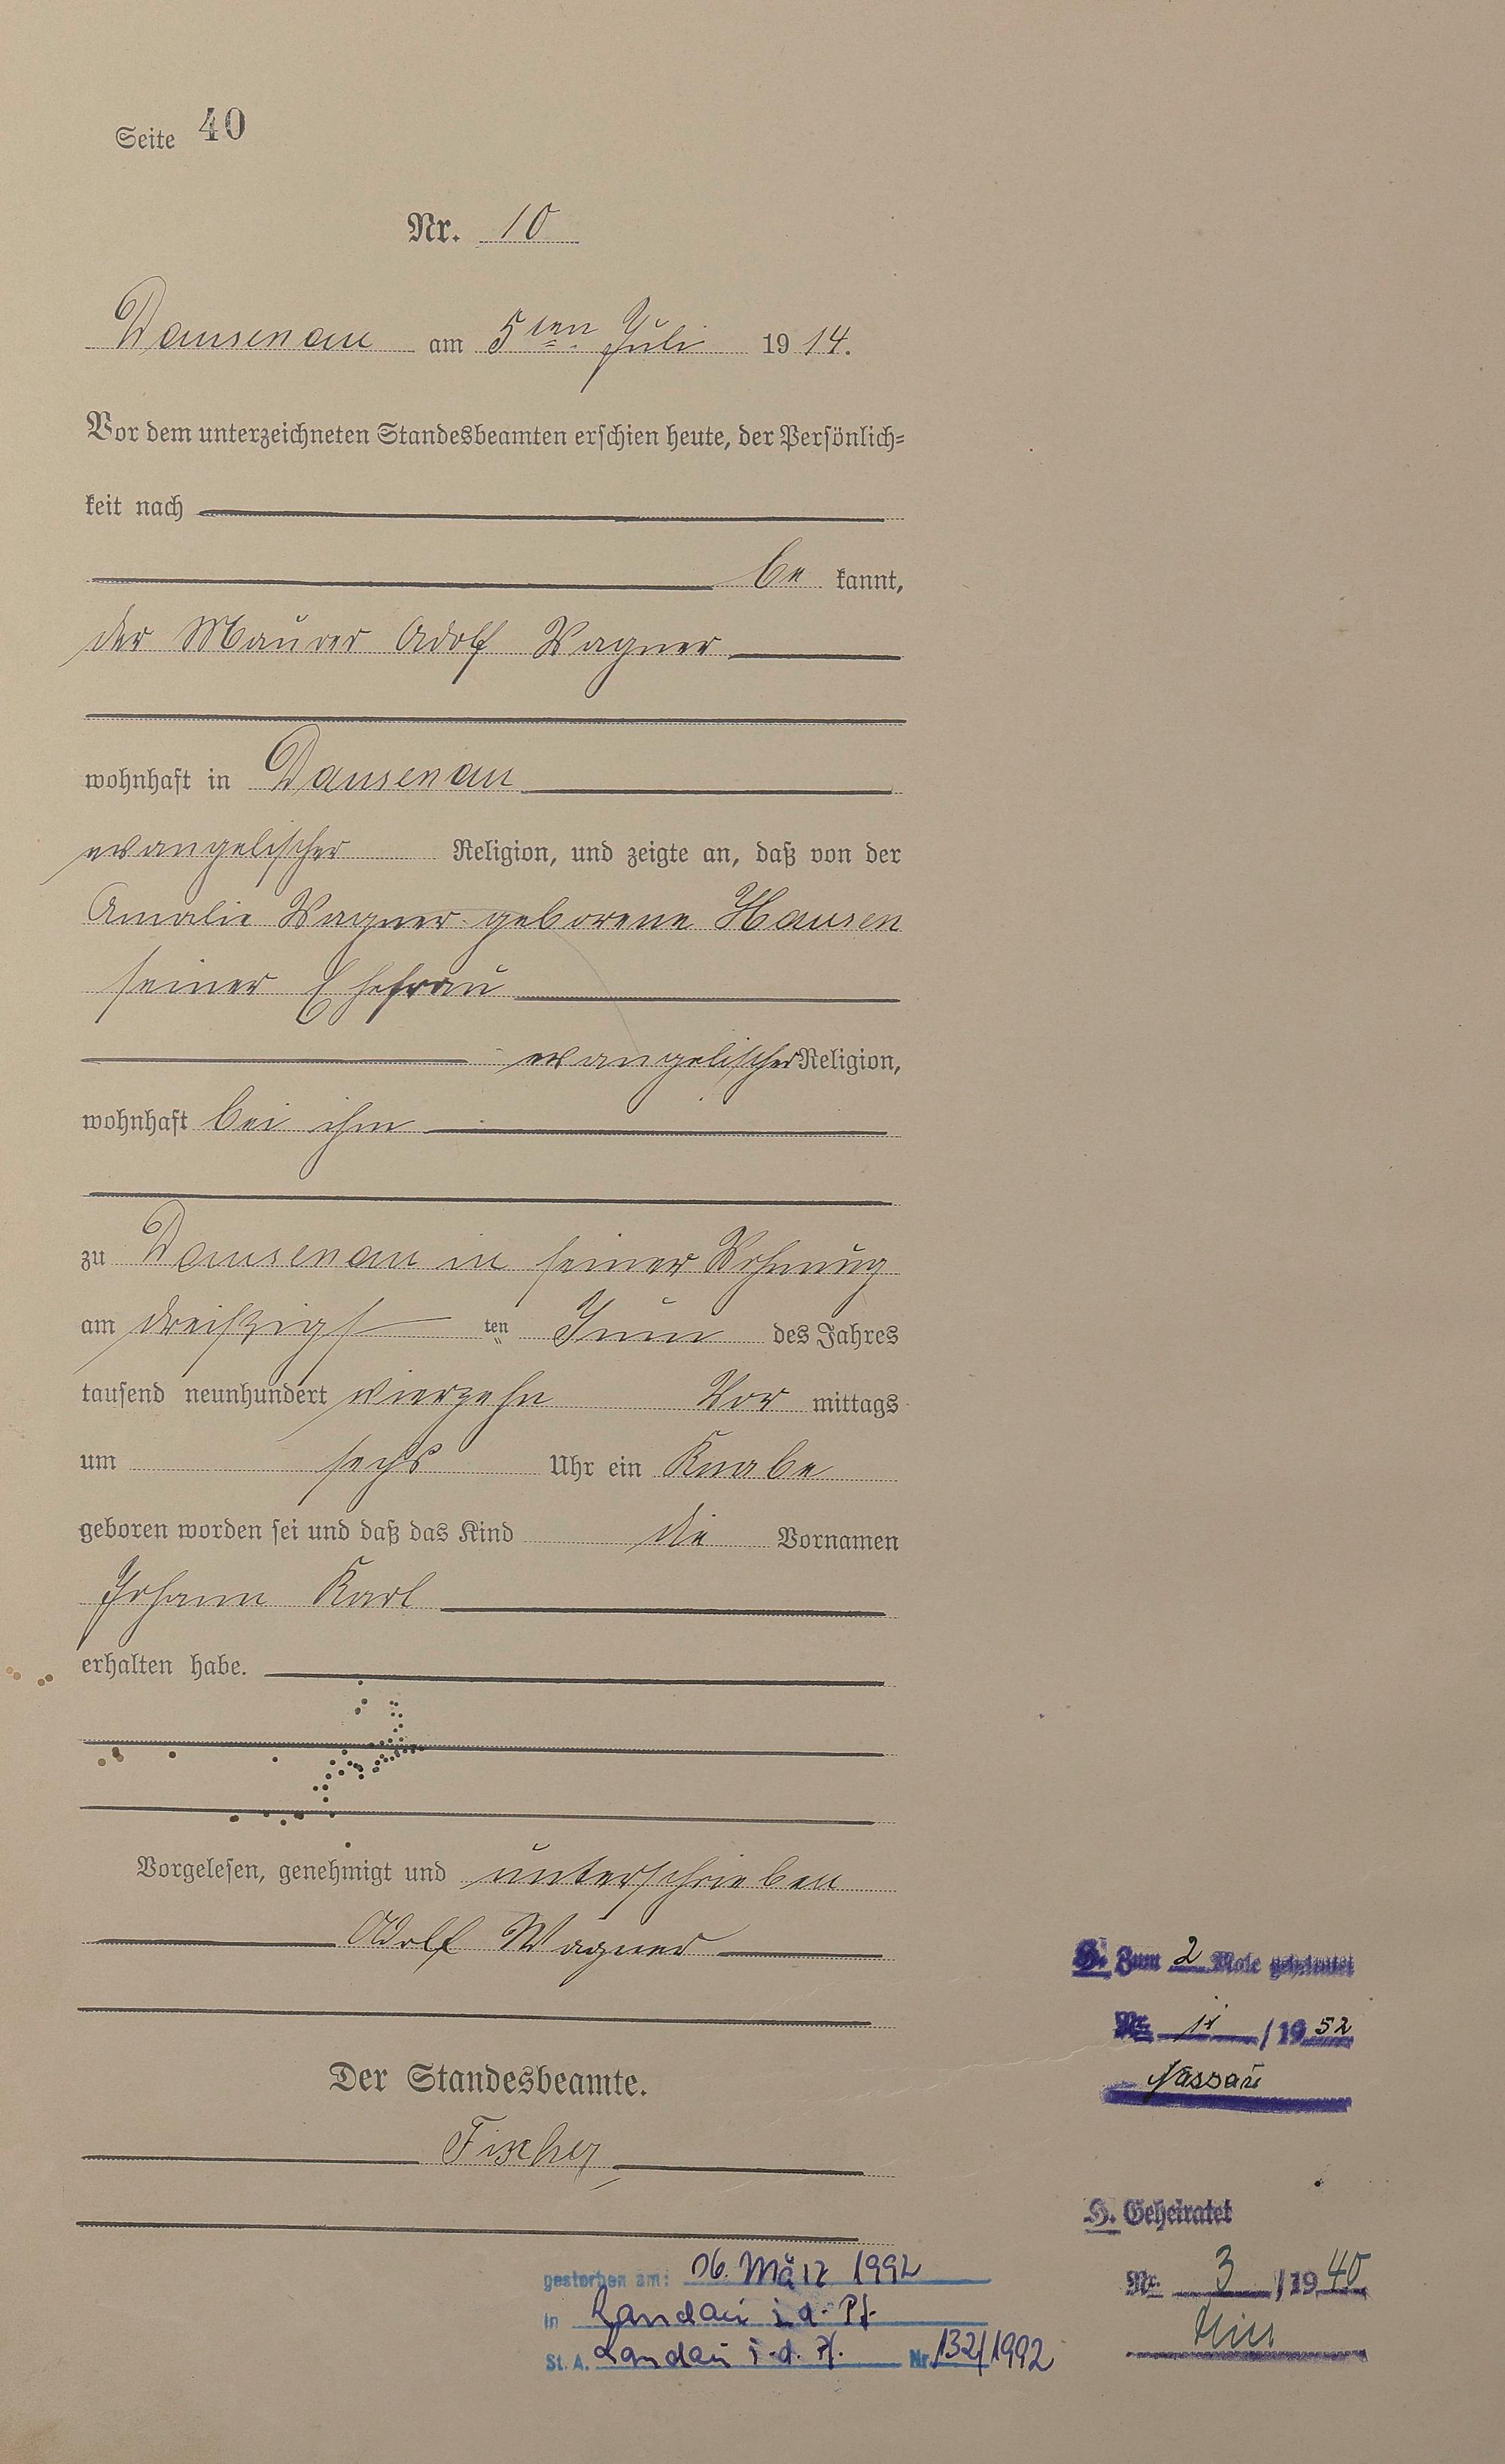 Seite 40
Nr. 10
Dausenau am 5ten Juli 1914.
Vor dem unterzeichneten Standesbeamten erschien heute, der Persönlich=
keit nach
be kannt,
der Maurer Adolf Wagner
wohnhaft in Dausenau
evangelischer Religion, und zeigte an, daß von der
Amalie Wagner geborene Hausen
seiner Ehefrau
evangelischer Religion,
wohnhaft bei ihm
zu Dausenau in seiner Wohnung
am dreißigsten Juni des Jahres
tausend neunhundert vierzehn Vor mittags
um sechs Uhr ein Knabe
geboren worden sei und daß das Kind die Vornamen
Johann Karl
erhalten habe.
Vorgelesen, genehmigt und unterschrieben
Adolf Wagner
Der Standesbeamte.
Fischer
H. Zum 2 Male geheiratet
Nr. /1952
Nassau
H. Geheiratet
Nr. 3/1940
gestorben am: 06. März 1992
in Landau i. d. Pf.
St. A. Landau i. d. Pf. Nr. 132/1992